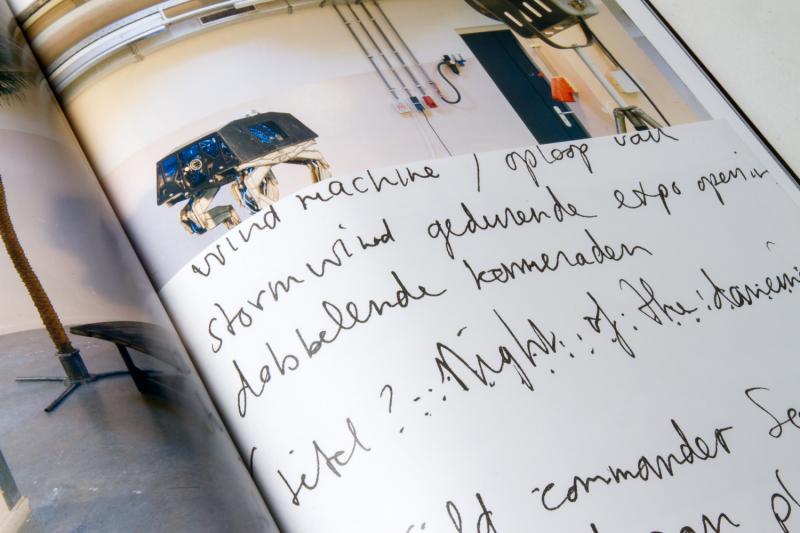 wind machine / oploop van
stormwind gedurende expo openin
dobbelende kameraden
titel? Night of the
commander Se